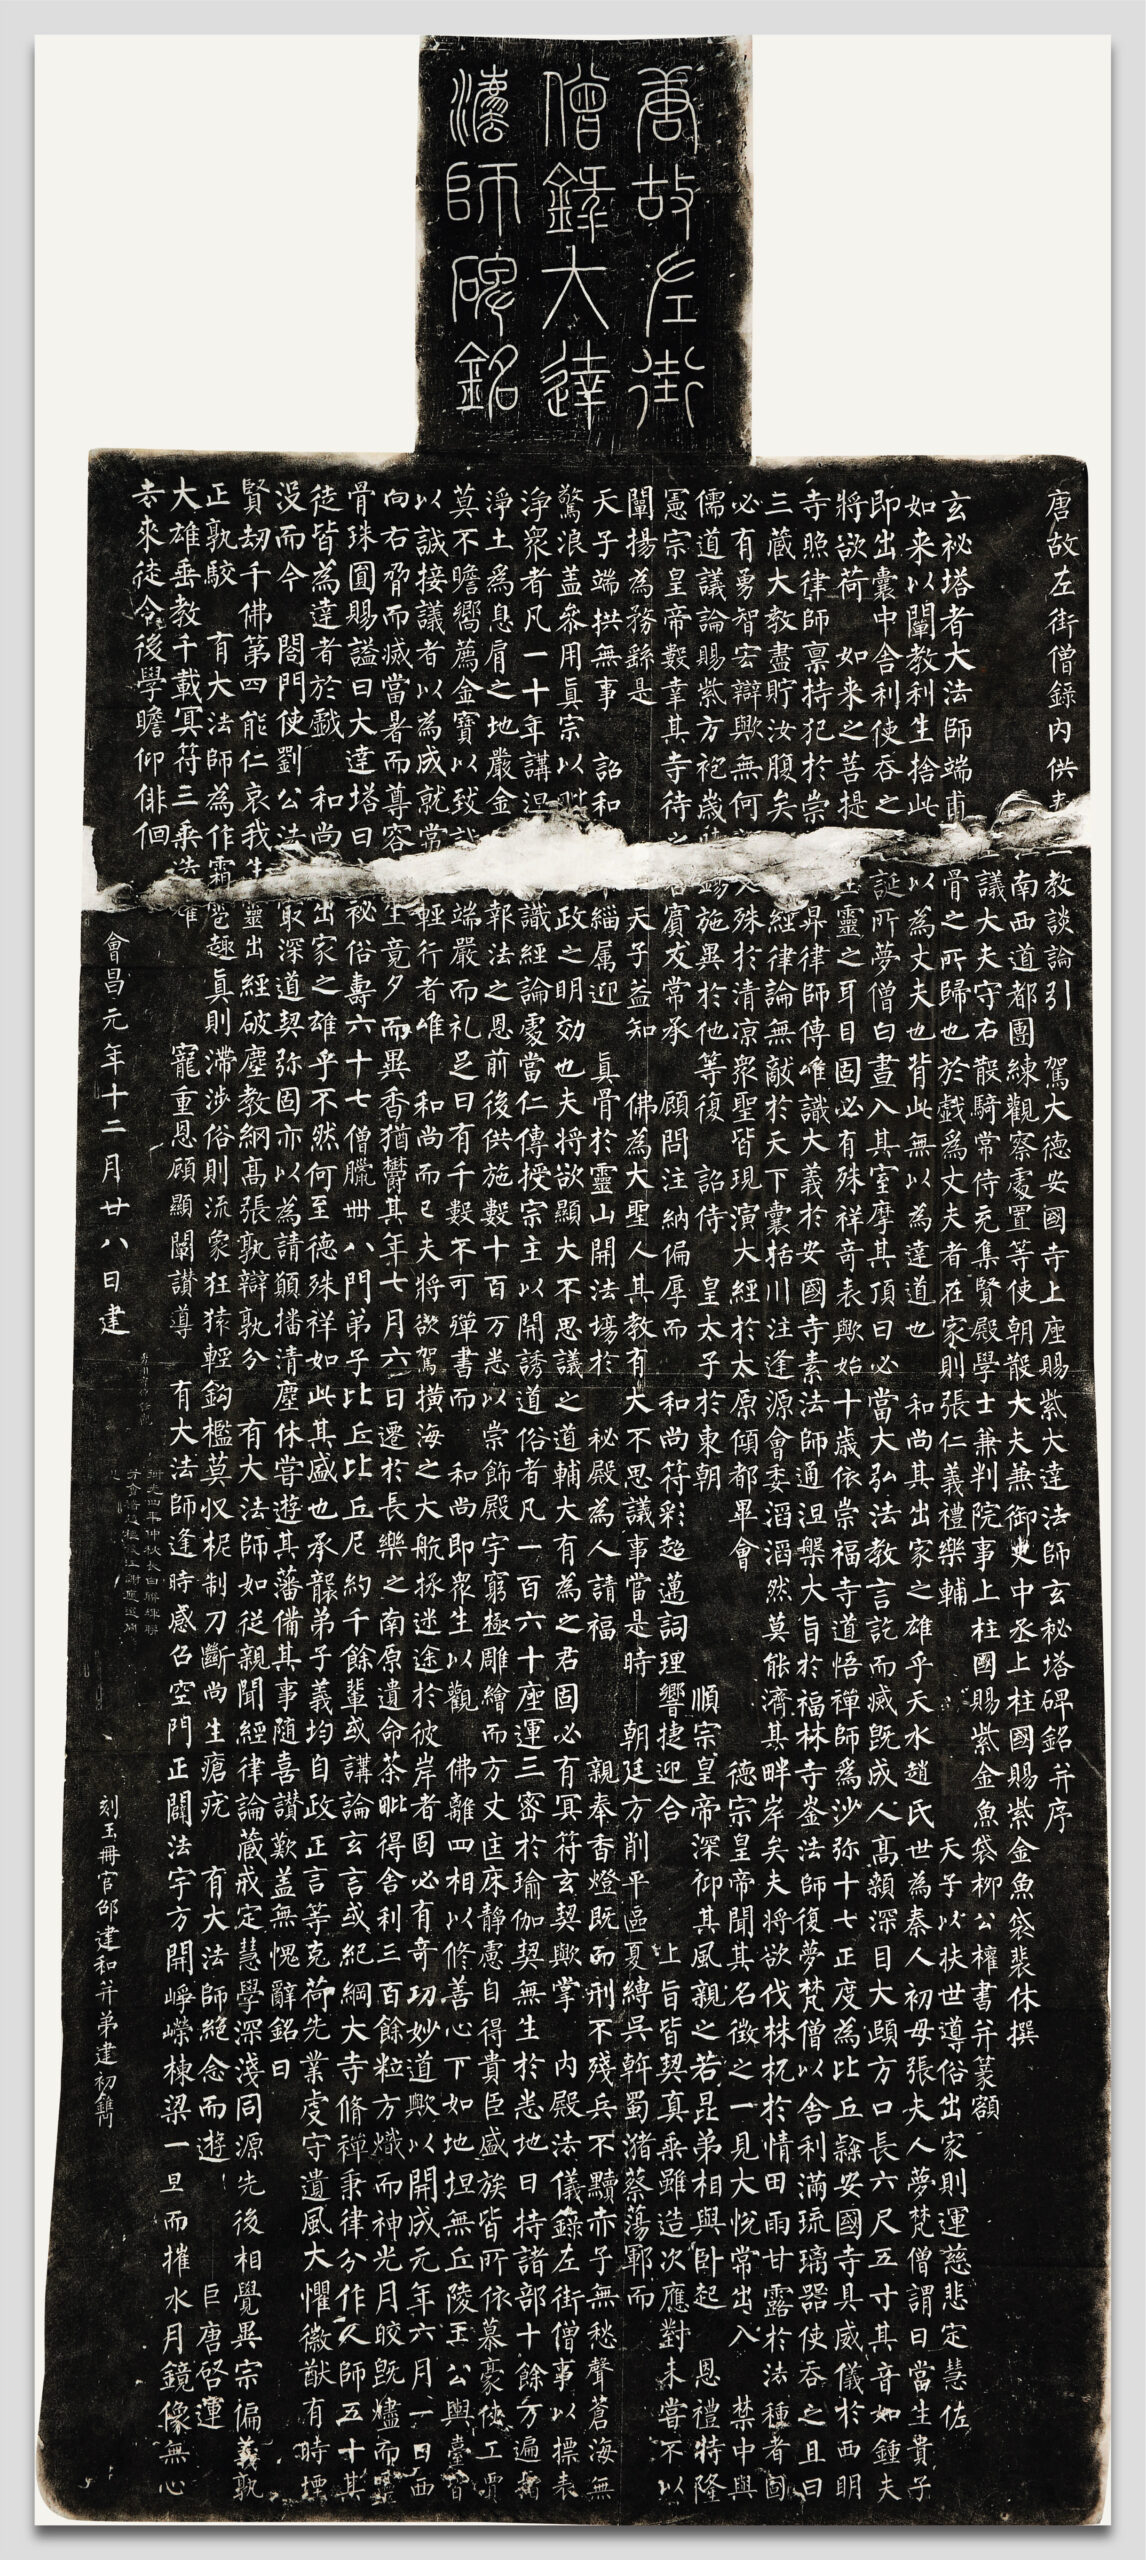 唐故左街
僧録大達
法師碑銘
唐故左街僧録内供教談論引 駕大德安國寺上座賜紫大達法師玄秘塔碑銘并序
南西道都團練觀察處置等使朝散大夫兼御史中丞上柱國賜紫金魚袋裴休撰
議大夫守右散騎常侍充集賢殿學士兼判院事上柱國賜紫金魚袋柳公權書并篆額
玄祕塔者大法師端甫骨之所歸也於戲爲丈夫者在家則張仁義禮樂輔 天子以扶世導俗出家則運慈悲定慧佐
如来以闡教利生捨此以為丈夫也背此無以為達道也 和尚其出家之雄乎天水趙氏世為秦人初母張夫人夢梵僧謂曰當生貴子
即出囊中舍利使吞之誕所夢僧白晝入其室摩其頂曰必當大弘法教言訖而滅既成人高顙深目大頤方口長六尺五寸其音如鍾夫
將欲荷 如来之菩提生靈之耳目固必有殊祥奇表歟始十歳依崇福寺道悟禪師爲沙弥十七正度為比丘隸安國寺具威儀於西明
寺照律師禀持犯於崇昇律師傳唯識大義於安國寺素法師通涅槃大旨於福林寺崟法師復夢梵僧以舍利滿琉璃器使吞之且曰
三藏大教盡貯汝腹矣經律論無敵於天下囊括川注逢源會委滔滔然莫能濟其畔岸矣夫將欲伐株杌於情田雨甘露於法種者固
必有勇智宏辯歟無何文殊於清凉衆聖皆現演大經於太原傾都畢會 德宗皇帝聞其名徵之一見大悅常出入 禁中與
儒道議論賜紫方袍歳時錫施異於他等復 詔侍 皇太子於東朝 順宗皇帝深仰其風親之若昆弟相與卧起 恩禮特隆
憲宗皇帝數幸其寺待之若賓友常承 顧問注納偏厚而 和尚符彩超邁詞理響捷迎合 上旨皆契真乘雖造次應對未嘗不以
闡揚為務繇是 天子益知 佛為大聖人其教有大不思議事當是時 朝廷方削平區夏縛吳斡蜀瀦蔡蕩鄆而
天子端拱無事 詔和緇属迎 真骨於靈山開法塲於 秘殿為人請福 親奉香燈既而刑不殘兵不黷赤子無愁聲蒼海無
驚浪蓋叅用真宗以毗政之明効也夫將欲顯大不思議之道輔大有為之君固必有冥符玄契歟掌 内殿法儀録左街僧事以標表
淨衆者凡一十年講涅識經論處當仁傳授宗主以開誘道俗者凡一百六十座運三密於瑜伽契無生於悉地日持諸部十餘万遍指
淨土爲息肩之地嚴金報法之恩前後供施數十百万悉以崇飾殿宇窮極雕繪而方丈匡床靜慮自得貴臣盛族皆所依慕豪俠工賈
莫不瞻嚮薦金寶以致端嚴而礼足日有千數不可殫書而 和尚即衆生以觀 佛離四相以修善心下如地坦無丘陵王公輿臺皆
以誠接議者以為成就常輕行者唯 和尚而已夫將欲駕橫海之大航拯迷途於彼岸者固必有奇功妙道歟以開成元年六月一日西
向右脅而滅當暑而尊容生竟夕而異香猶欝其年七月六日遷於長樂之南原遺命茶毗得舍利三百餘粒方熾而神光月皎既燼而靈
骨珠圓賜謚曰大達塔曰祕俗壽六十七僧臘卌八門弟子比丘比丘尼約千餘輩或講論玄言或紀綱大寺脩禪秉律分作人師五十其
徒皆為達者於戲 和尚出家之雄乎不然何至德殊祥如此其盛也承襲弟子義均自政正言等克荷先業虔守遺風大懼徽猷有時堙
没而今 閤門使劉公法最深道契弥固亦以為請願播清塵休甞遊其藩備其事随喜讃歎蓋無愧辭銘曰
賢劫千佛第四能仁哀我生靈出經破塵教網高張孰辯孰分 有大法師如從親聞經律論藏戒定慧學深淺同源先後相覺異宗偏義孰
正孰駮 有大法師為作霜雹趣真則滯涉俗則流象狂猿輕鈎檻莫收柅制刀斷尚生瘡疣 有大法師絶念而遊 巨唐啓運
大雄垂教千載冥符三乘迭耀 寵重恩顧顯闡讃導 有大法師逢時感召空門正闢法宇方開峥嵘棟梁一旦而摧水月鏡像無心
去來徒令後學瞻仰俳徊
會昌元年十二月廿八日建
刻玉冊官邵建和并弟建初鐫